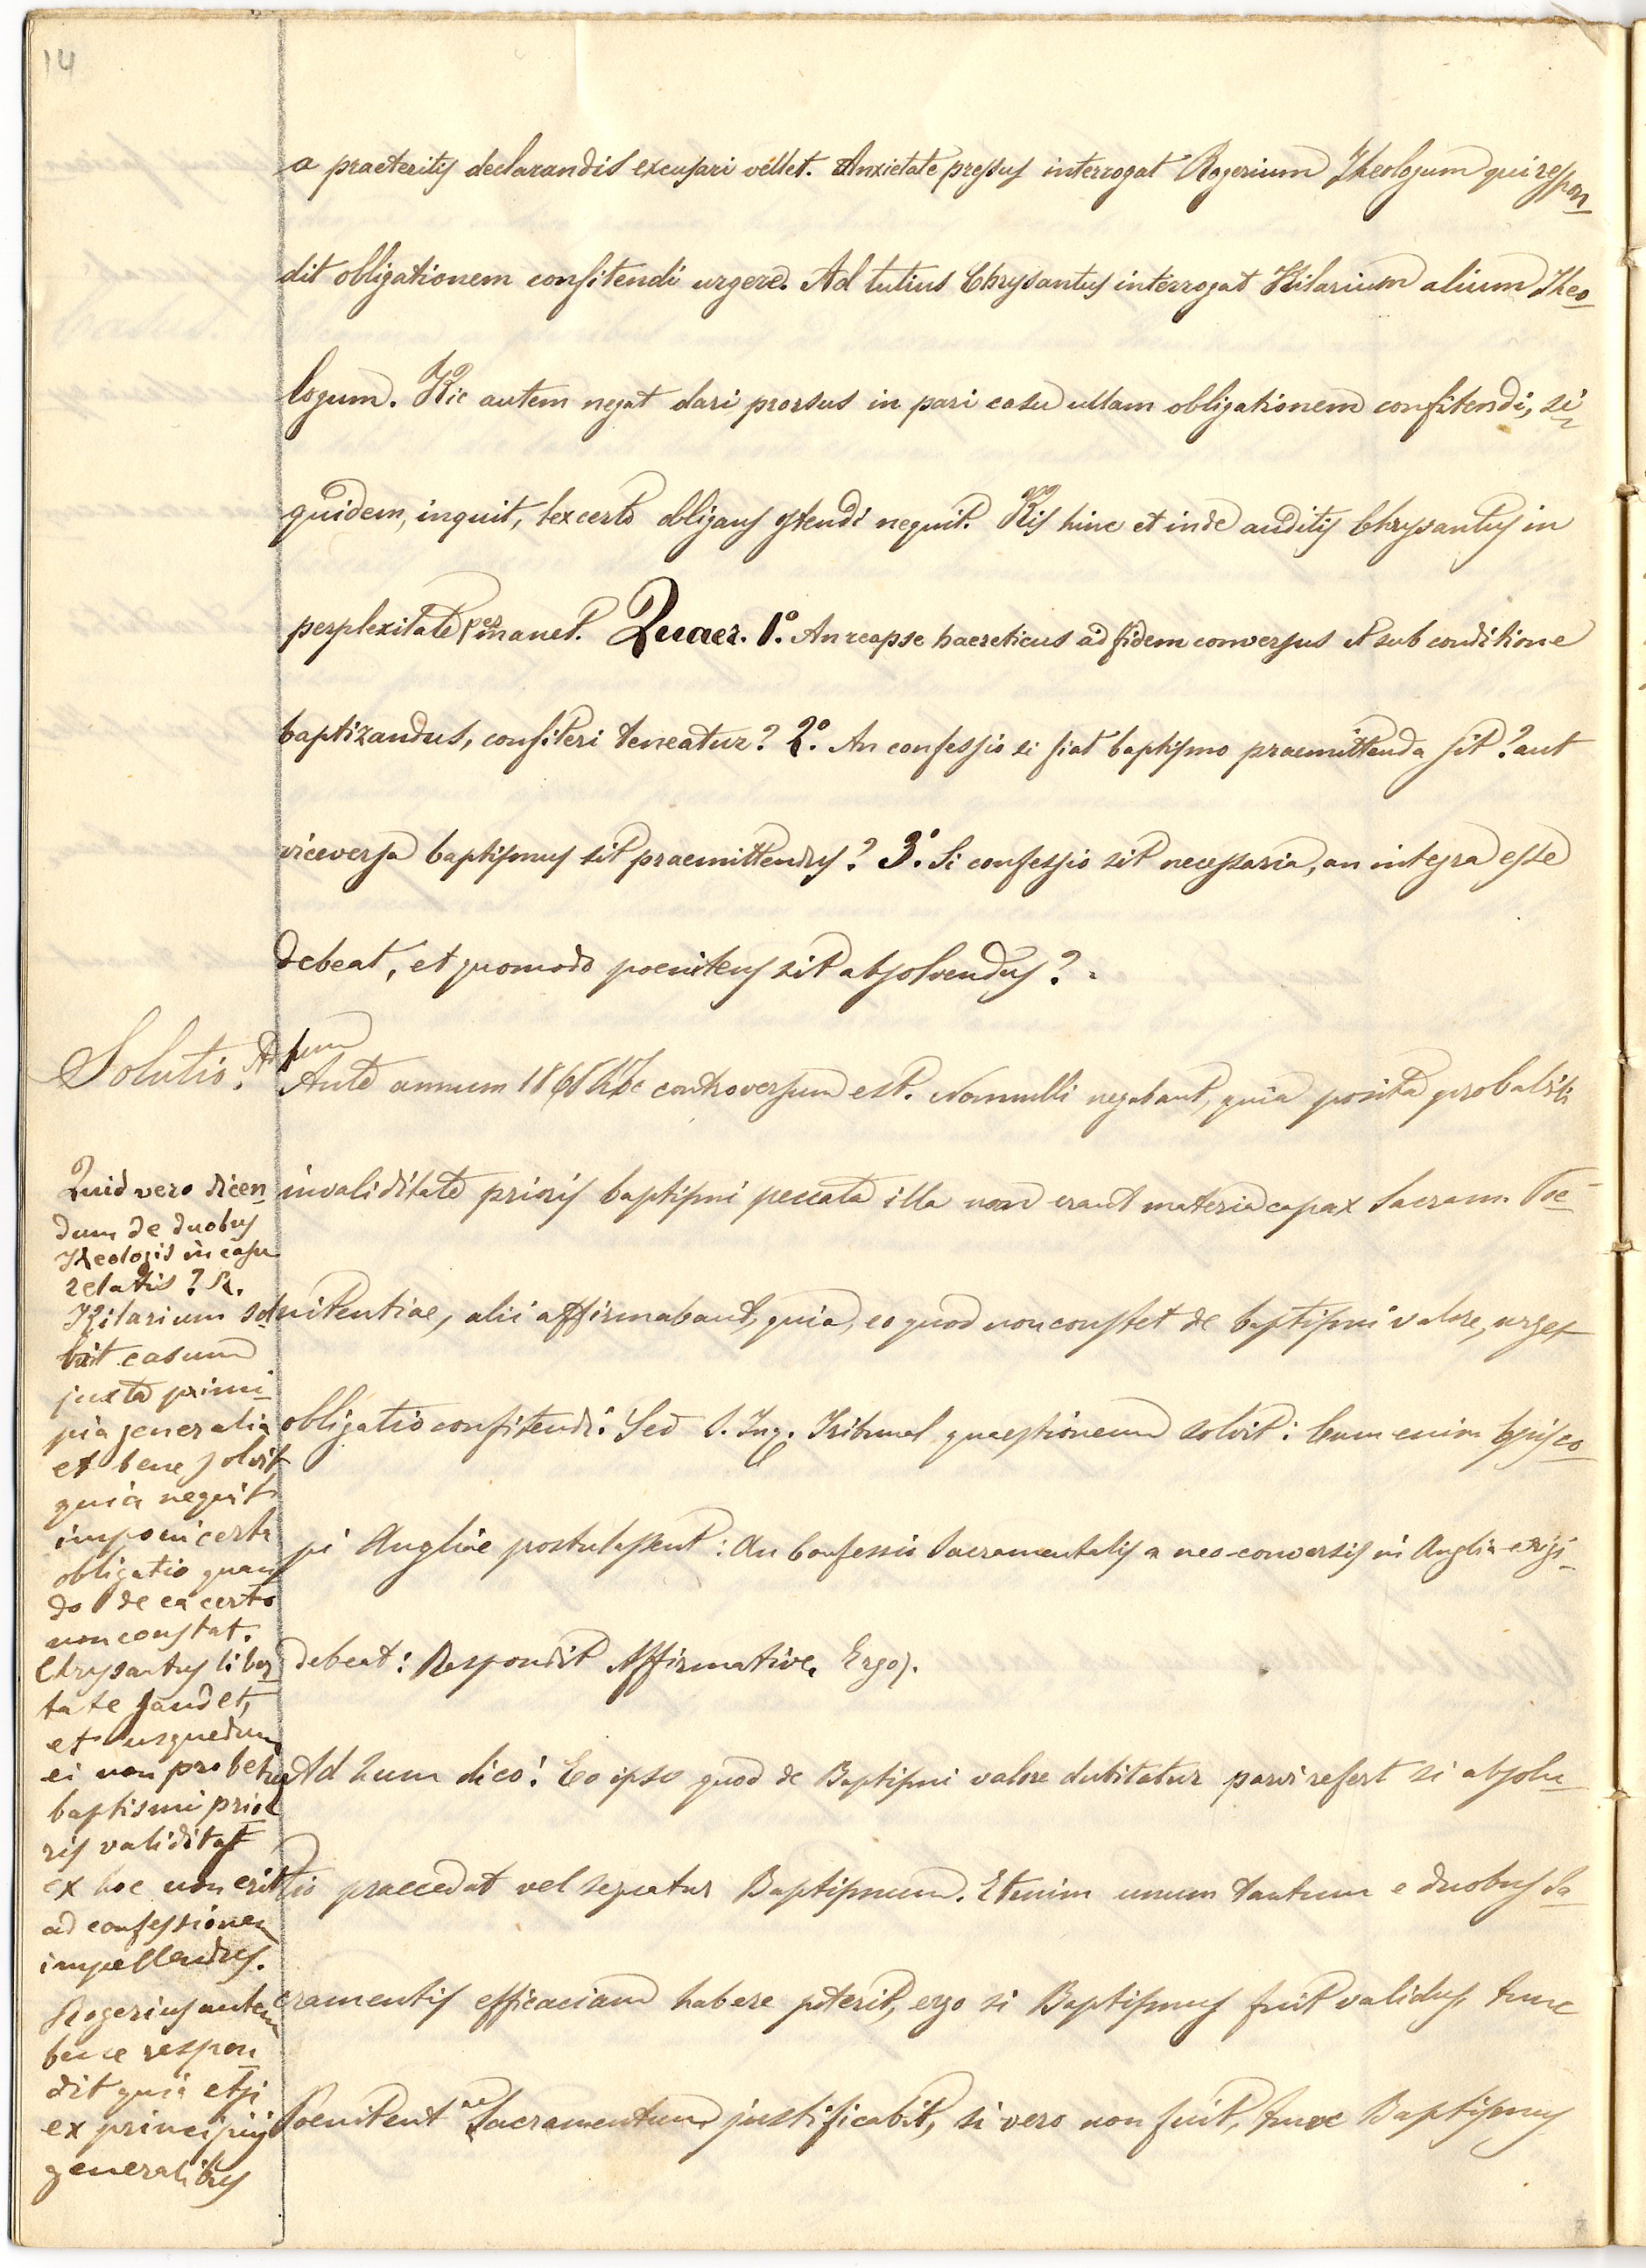 14
a praeteritis declarandis excusari vellet. Anxietate pressus interrogat Rogerium Theologum qui respon
dit obligationem confitendi urgere. Ad tutius Chrysantus interrogat Hilarium alium Theo
logum. Hic autem negat dari prorsus in pari casu ullam obligationem confitendi, si
quidem, inquit, lex certo obligans ostendi nequit. His hinc et inde auditis Chrysantus in
perplexitate permanet. Quaer. 1.° An reapse haereticus ad fidem conversus et sub conditione
baptizandus, confiteri teneatur? 2.° An confessio si fiat baptismo praemittenda sit? aut
viceversa baptismus sit praemittendus? 3.° Si confessio sit necessaria, an integra esse
debeat, et quomodo poenitens sit absolvendus?
Solutio. Ad 1um
Ante annum 1868 hoc controversum est. Nonnulli negabant, quia posita probabili
invaliditate prioris baptismi peccata illa non erant materia capax Sacram. Poe
nitentiae, alii affirmabant, quia, eo quod non constet de baptismi valore, urget
obligatio confitendi. Sed S. Inq. Tribunal quaestionem solvit: Cum enim Episco
pi Angliae postulassent: An Confessio Sacramentalis a neo-conversis in Anglia exigi
debeat: Respondit Affirmative. Ergo.
Ad 2um dico: Eo ipso quod de Baptismi valore dubitatur parvi refert si absolu
tio praecedat vel sequatur Baptismum. Etenim unum tantum e duobus Sa
cramentis efficaciam habere poterit, ergo si Baptismus fuit validus, tunc
Poenitent ae Sacramentum justificabit, si vero non fuit, tunc Baptismus
Quid vero dicen
dum de duobus
Theologis in casu
relatis? R.
Hilarium sol
vit casum
juxta princi
pia generalia
et bene solvit,
quia nequit
imponi certa
obligatio quan
do de ea certo
non constat.
Chrysantus liber
tate gaudet,
et usquedum
ei non probetur
baptismi prio
ris validitas
ex hoc non erit
ad confessionem
impellendus.
Rogerius autem
bene respon
dit quia etsi
ex principiis
generalibus